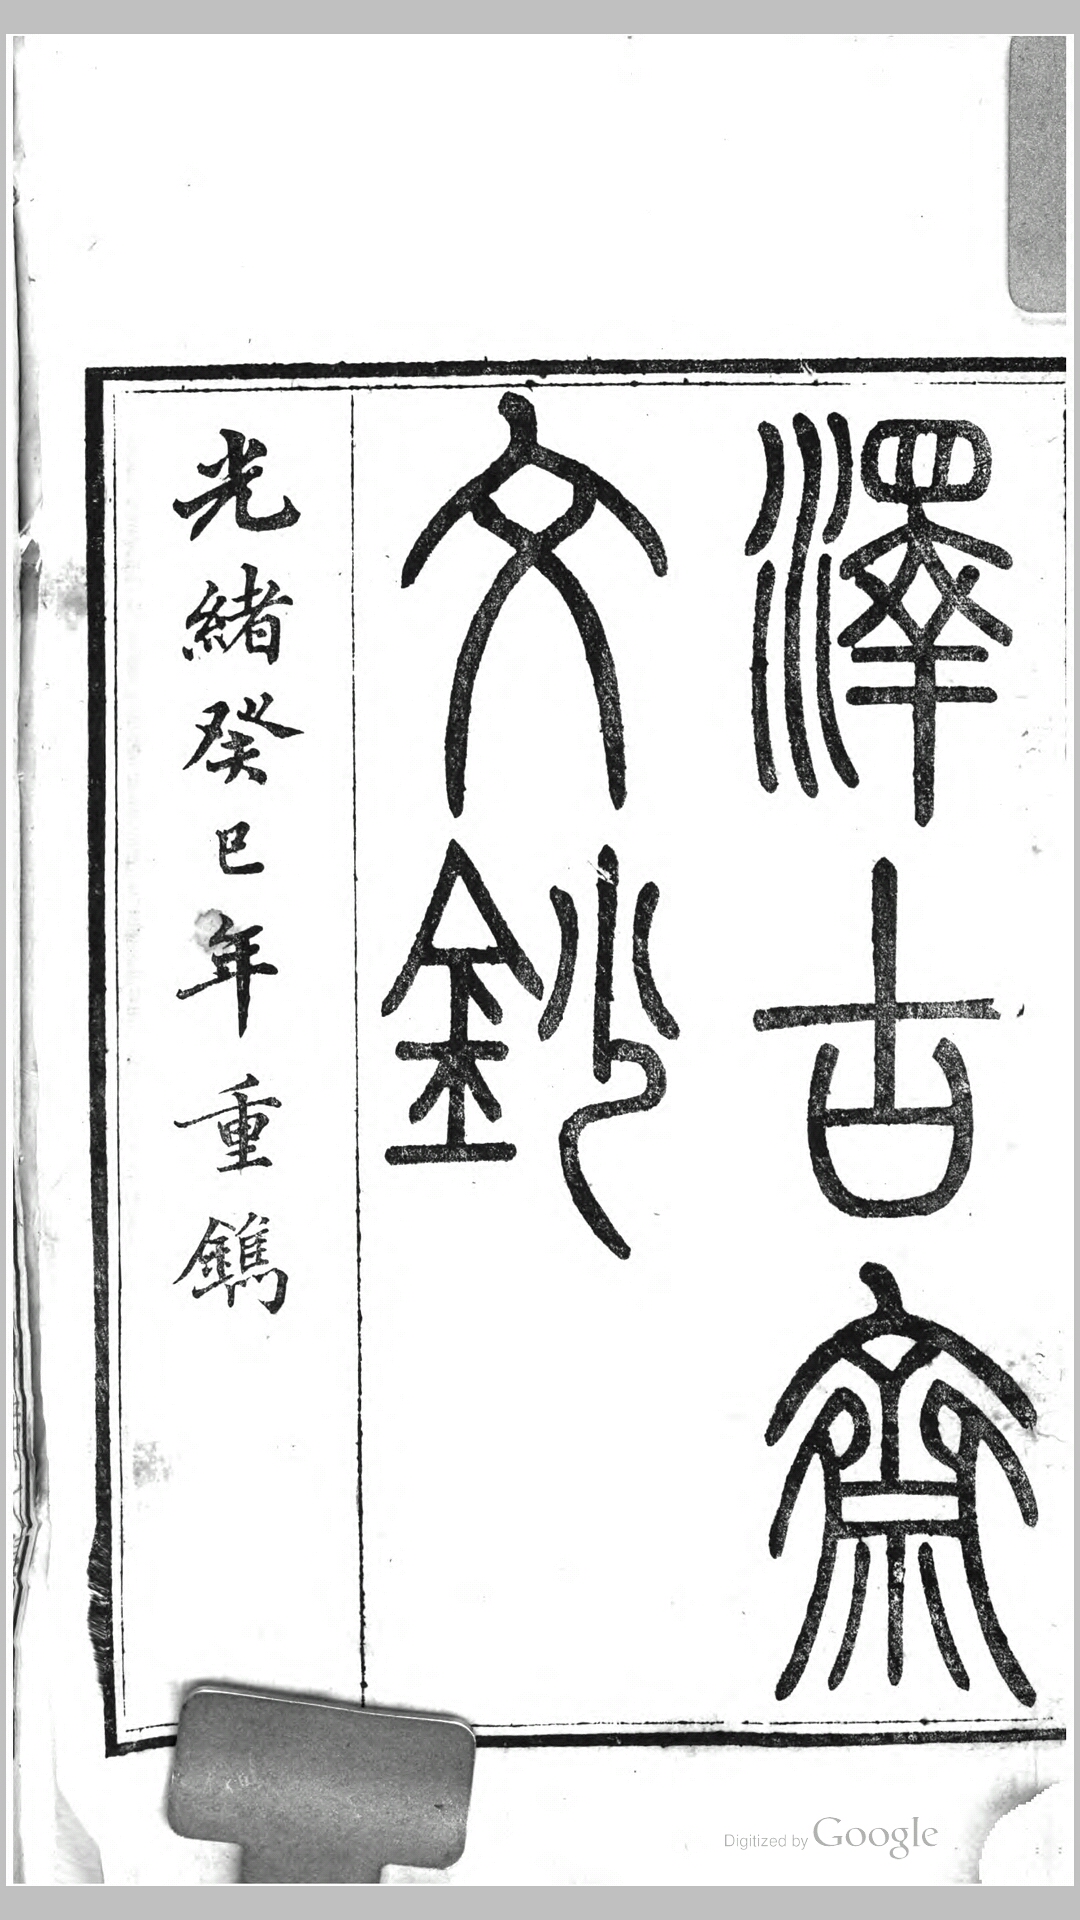 澤古齋
文鈔
光緒癸巳年重鐫
Digitized by Google